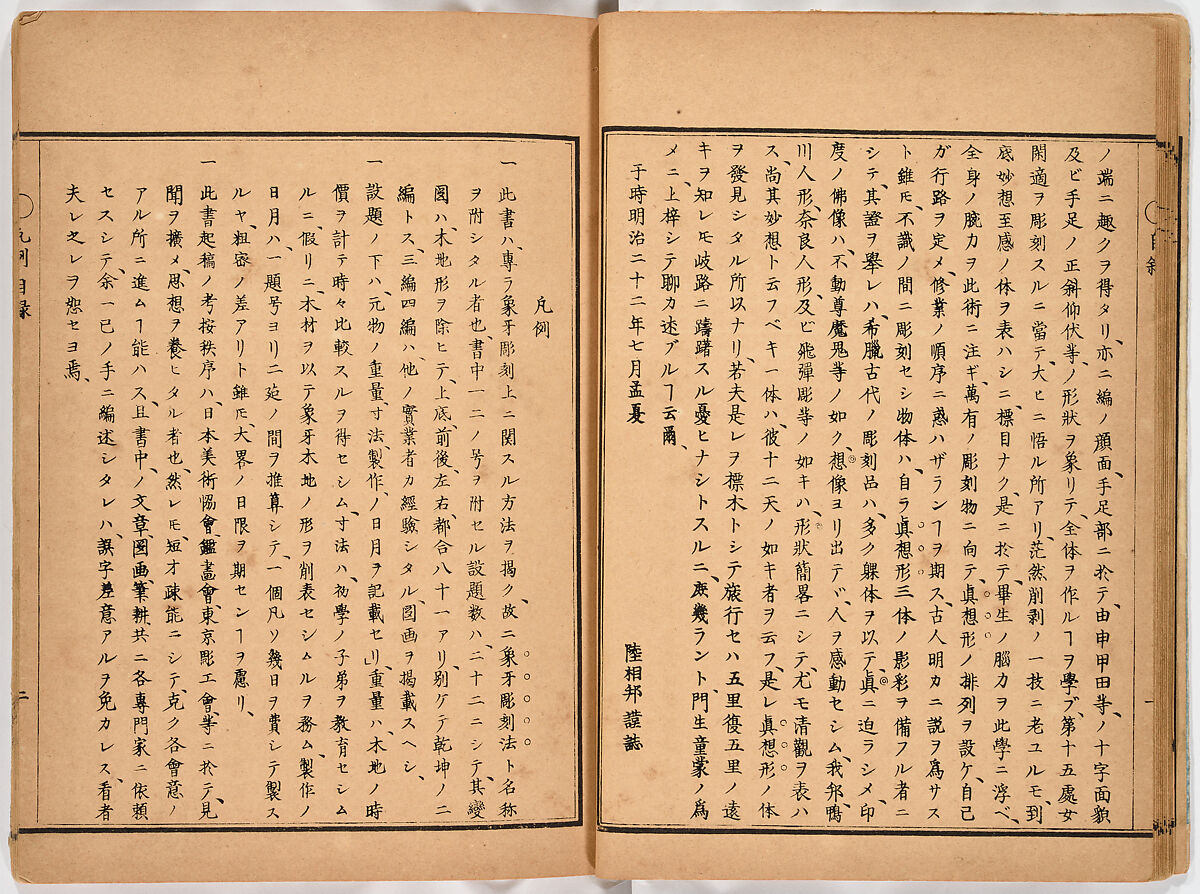 ノ端ニ趣クヲ得タリ、亦ニ編ノ顔面、手足部ニ於テ、由申甲田等、ノ十字面貌
及ビ手足ノ正斜仰伏等、ノ形狀ヲ象リテ、全体ヲ作ルヿヲ學ブ、第十五處女
閑適ヲ彫刻スルニ當テ、大ヒニ悟ル所アリ、茫然削剥ノ一技ニ老ユルモ、到
底妙想至感ノ体ヲ表ハシニ標目ナク、是ニ於テ畢生ノ腦力ヲ此學ニ浮ベ、
全身ノ腕力ヲ此術ニ注ギ、萬有ノ彫刻物ニ向テ、眞想形ノ排列ヲ設ケ、自己
ガ行路ヲ定メ、修業ノ順序ニ惑ハザランヿヲ期ス、古人明カニ説ヲ為サス
ト雖モ、不識ノ間ニ彫刻セシ物体ハ、自ラ眞想形三体ノ影彩ヲ備フル者ニ
シテ、其證ヲ舉レハ、希臘古代ノ彫刻品ハ、多ク躶体ヲ以テ、眞ニ迫ラシメ、印
度ノ佛像ハ、不動尊魔鬼等ノ如ク、想像ヨリ出テヾ、人ヲ感動セシム、我邦鴨
川人形、奈良人形、及ビ飛彈彫等ノ如キハ、形狀簡畧ニシテ、尤モ清觀ヲ表ハ
ス、尚其妙想ト云フベキ一体ハ、彼十二天ノ如キ者ヲ云フ、是レ眞想形ノ体
ヲ發見シタル所以ナリ、若夫是レヲ標木トシテ旅行セハ、五里復五里ノ遠
キヲ知レモ岐路ニ躊躇スル憂ヒナシトスルニ、庶幾ラント、門生童蒙ノ爲
メニ、上梓シテ聊カ述ブルヿ云爾、
于時明治二十二年七月孟夏
陸相邦謹誌
自敘
一
凡例
一 此書ハ、專ラ象牙彫刻上ニ関スル方法ヲ揭ク、故ニ象牙彫刻法ト名称
ヲ附シタル者也、書中一二ノ号ヲ附セル設題数ハ、二十二ニシテ、其變
圖ハ、木地形ヲ除ヒテ、上底、前後、左右、都合八十一アリ、別ケテ乾坤ノ二
編トス、三編四編ハ、他ノ實業者カ經驗シタル、圖画ヲ揭載スヘシ、
一 設題ノ下ハ、元物ノ重量、寸法、製作、ノ日月ヲ記載セリ」重量ハ、木地ノ時
價ヲ計テ時々比較スルヲ得セシム、寸法ハ、初學ノ子弟ヲ教育セシム
ルニ、假リニ、木材ヲ以テ象牙木地ノ形ヲ削表セシムルヲ務ム、製作ノ
日月ハ、一題号ヨリ二莚ノ間ヲ推算シテ、一個凡ソ幾日ヲ費シテ製ス
ルヤ、粗密ノ差アリト雖モ、大畧ノ日限ヲ期センヿヲ慮リ、
一 此書起稿ノ考按秩序ハ、日本美術恊會、鑑畫會、東京彫工會、等ニ於テ、見
聞ヲ擴メ、思想ヲ養ヒタル者也、然レモ、短才疎能ニシテ、克ク各會意ノ
アル所ニ進ムヿ能ハス、且書中、ノ文章、圖画、筆耕共ニ各專門家ニ依頼
セスシテ、余一己ノ手ニ編述シタレハ、誤字差意アルヲ免カレス、看者
夫レ之レヲ恕セヨ焉、
凡例 目録
二